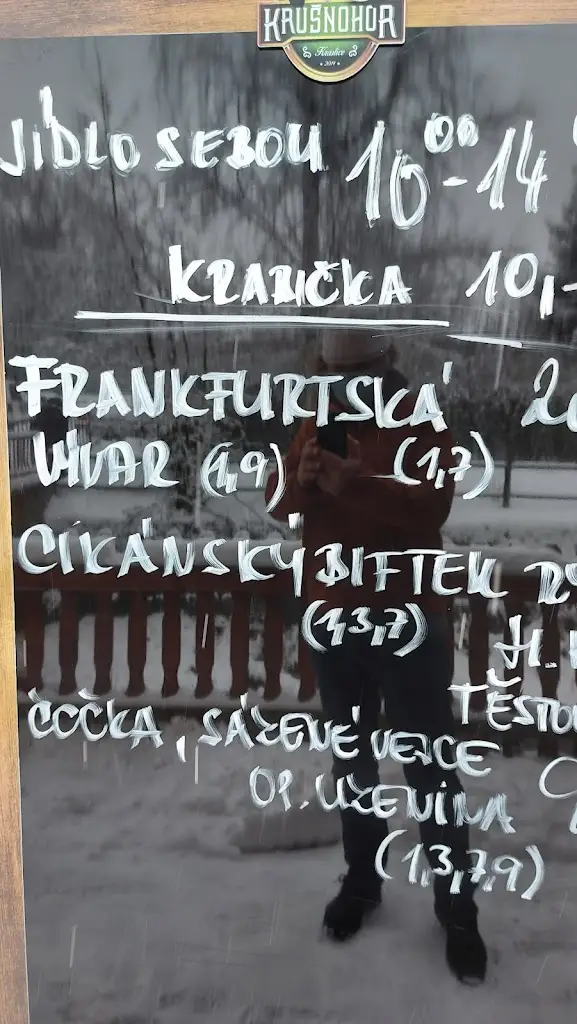 KRUŠNOHOR
Kraslice
2019
JÍDLO SEBOU 10⁰⁰-14
KRABIČKA 10,-
FRANKFURTSKÁ
VÝVAR (1,9) (1,7)
CIKÁNSKÝ BIFTEK
(1,3,7)
ČOČKA, SÁZENÉ VEJCE
OP. UZENINA
(1,3,7,9)